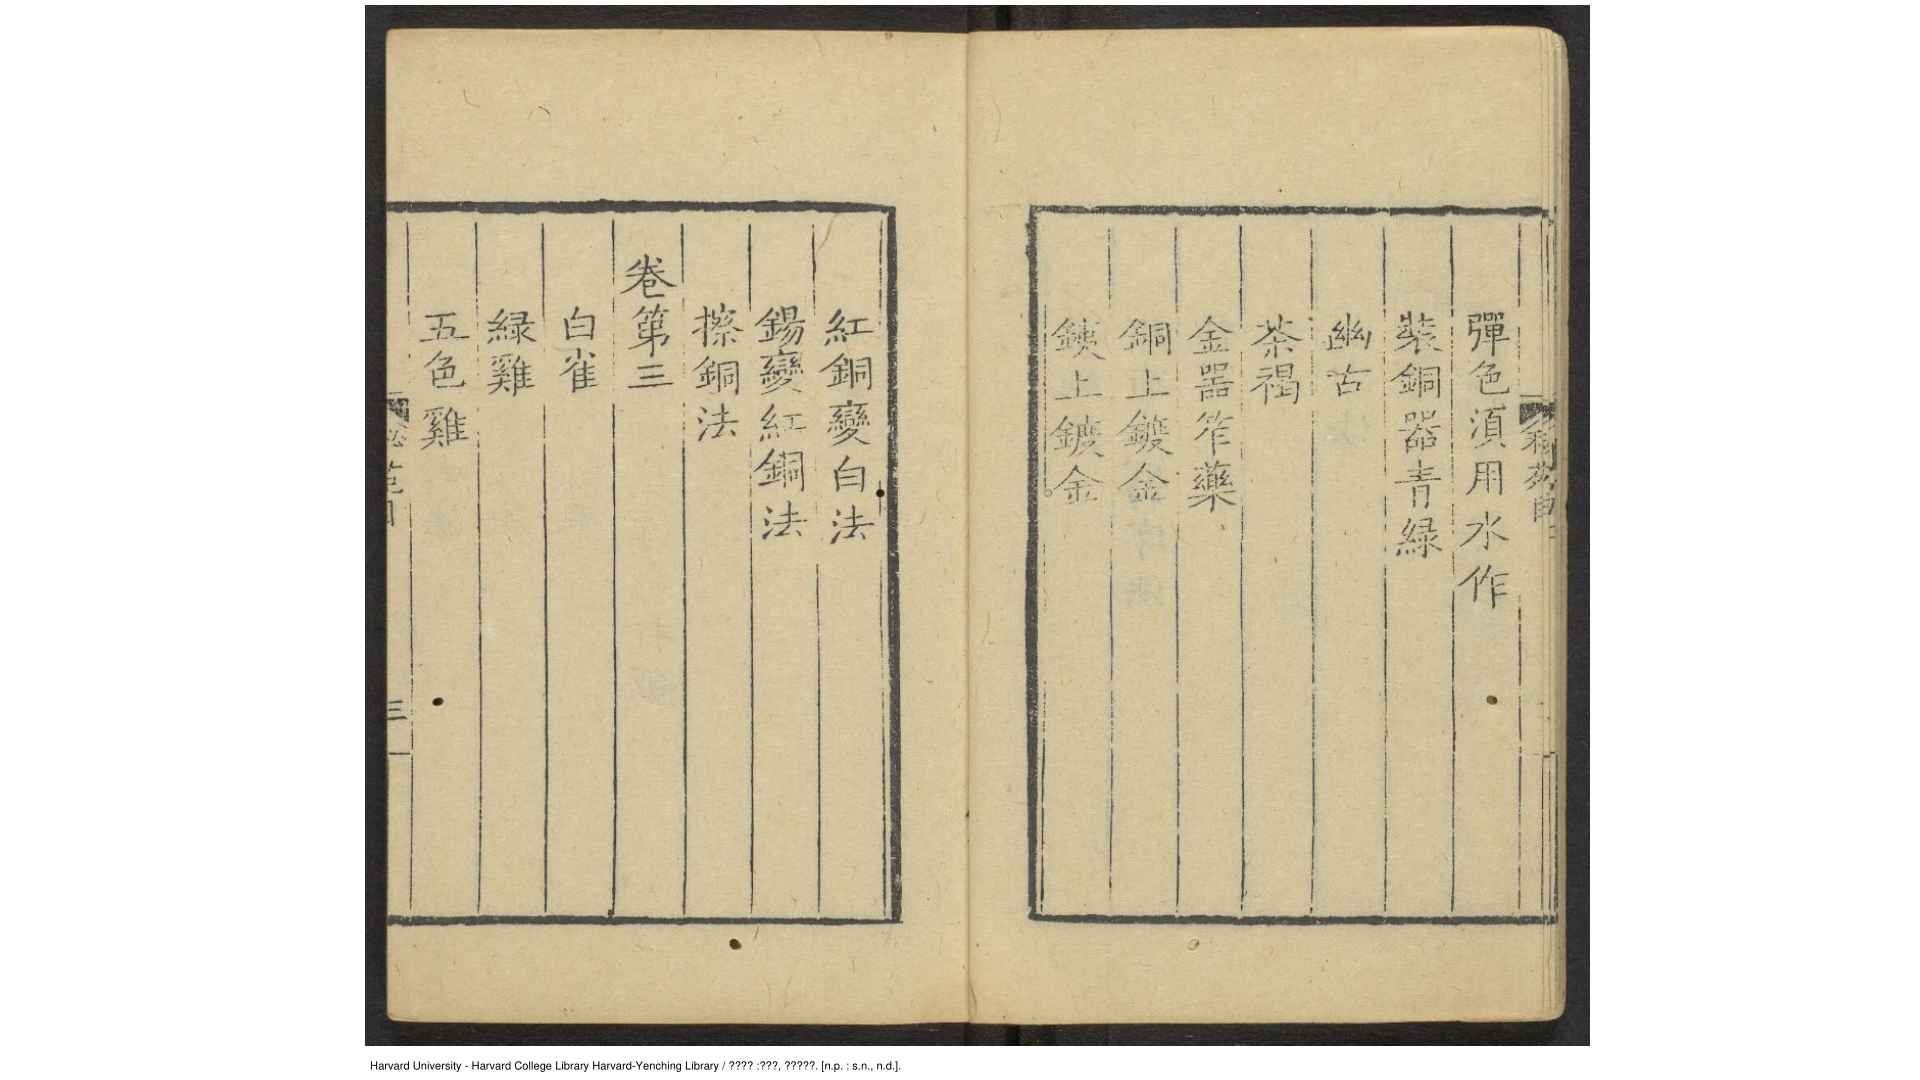 彈色湏用水作
裝銅器青緑
幽古
茶褐
金器笮藥
銅上鍍金
鐵上鍍金
紅銅變白法
錫變紅銅法
擦銅法
卷第三
白雀
緑雞
五色雞
三
Harvard University - Harvard College Library Harvard-Yenching Library / ???? :???, ?????. [n.p. : s.n., n.d.].